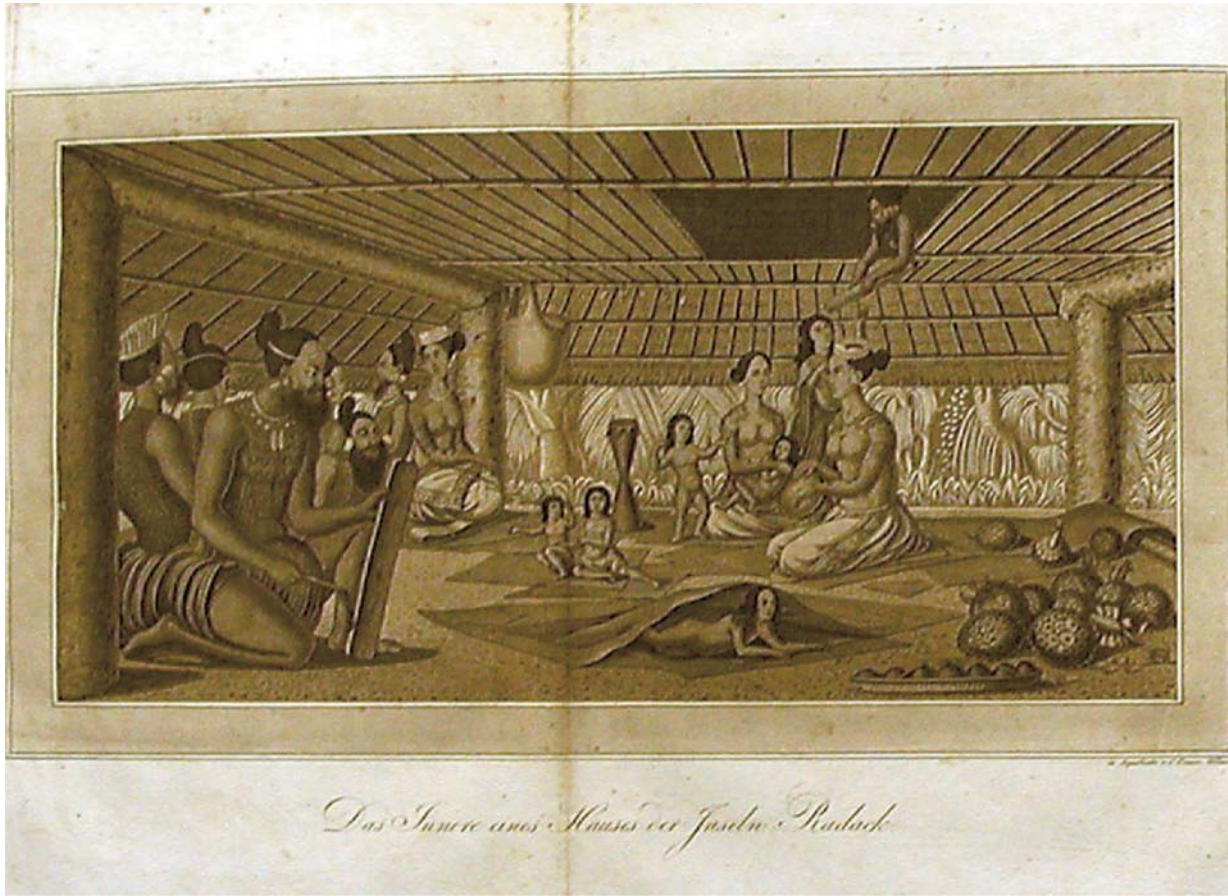 Das Innere eines Hauses der Inseln Radack